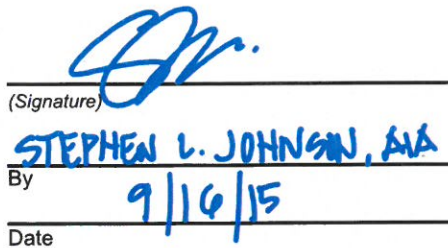 (Signature)
STEPHEN L. JOHNSON, AIA
By
9/16/15
Date